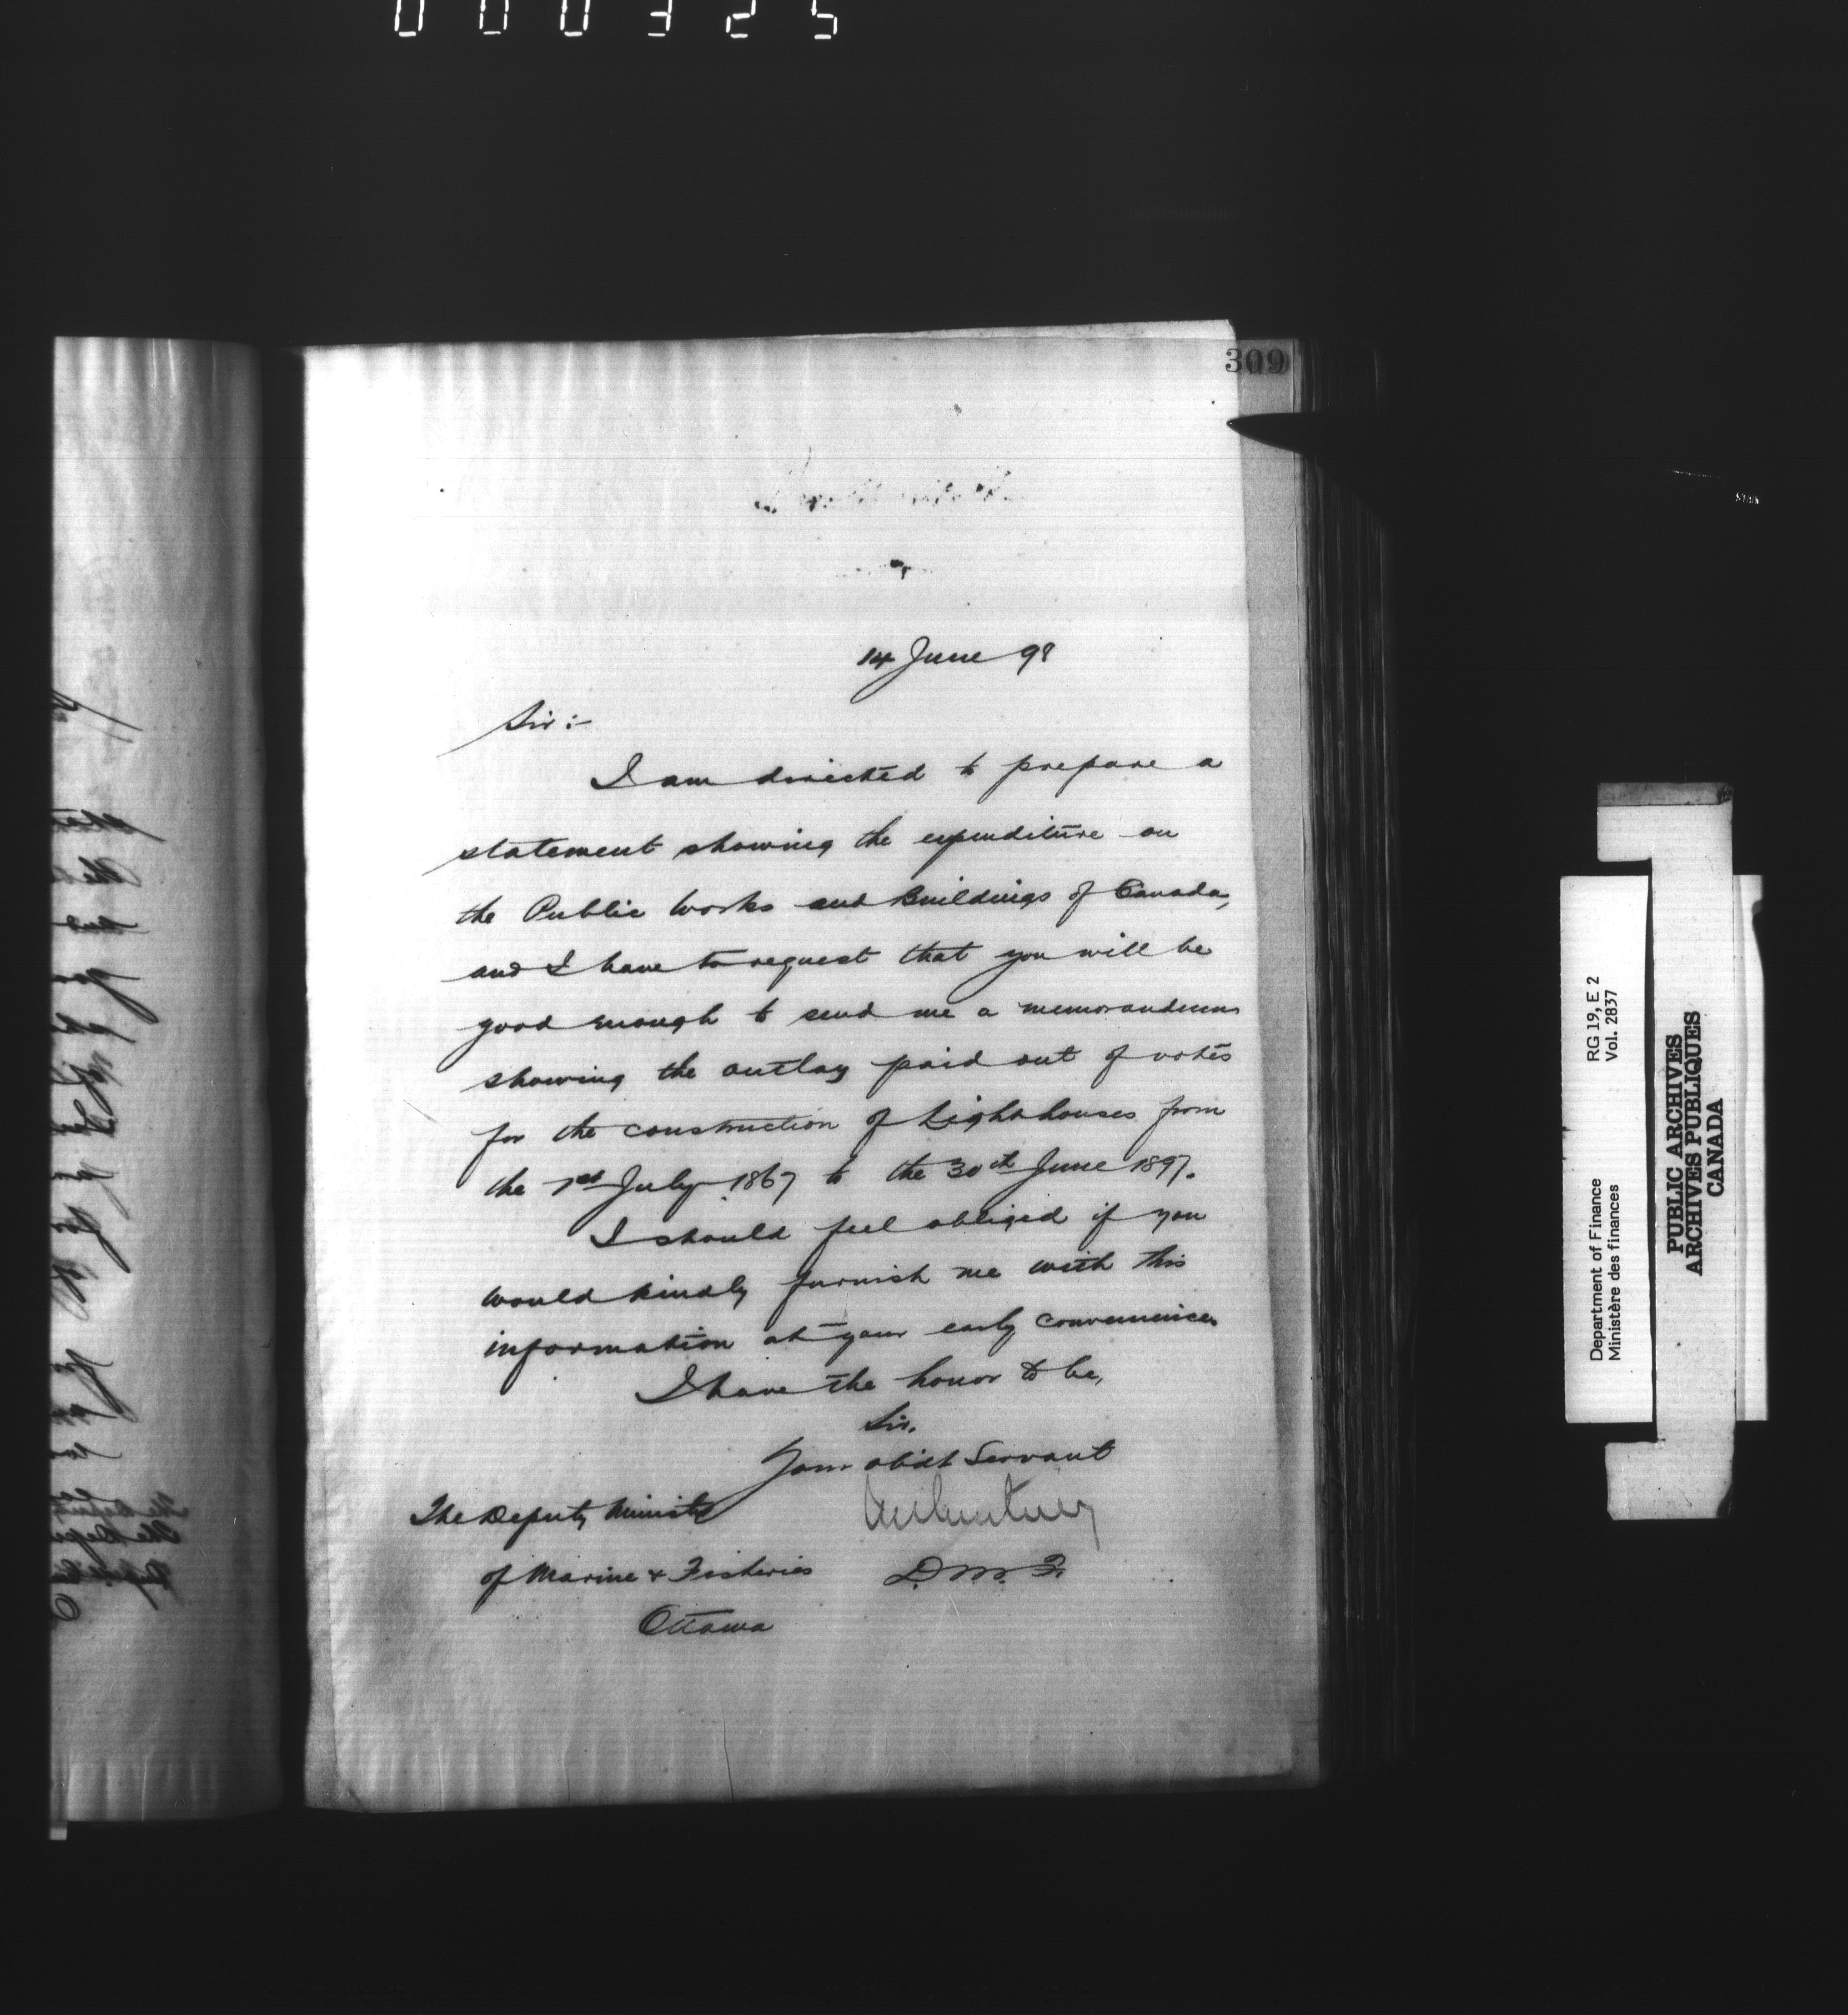 000325
309
14 June 98
Sir :-
I am directed to prepare a
statement showing the expenditure on
the Public Works and Buildings of Canada,
and I have to request that you will be
good enough to send me a memorandum
showing the outlay paid out of votes
for the construction of Lighthouses from
the 1st July 1867 to the 30th June 1897.
I should feel obliged if you
would kindly furnish me with this
information at your early convenience.
I have the honor to be,
Sir,
Your obdt Servant
The Deputy Minister
of Marine & Fisheries
D.M.F.
Ottawa
Department of Finance
Ministère des finances
RG 19, E 2
Vol. 2837
PUBLIC ARCHIVES
ARCHIVES PUBLIQUES
CANADA